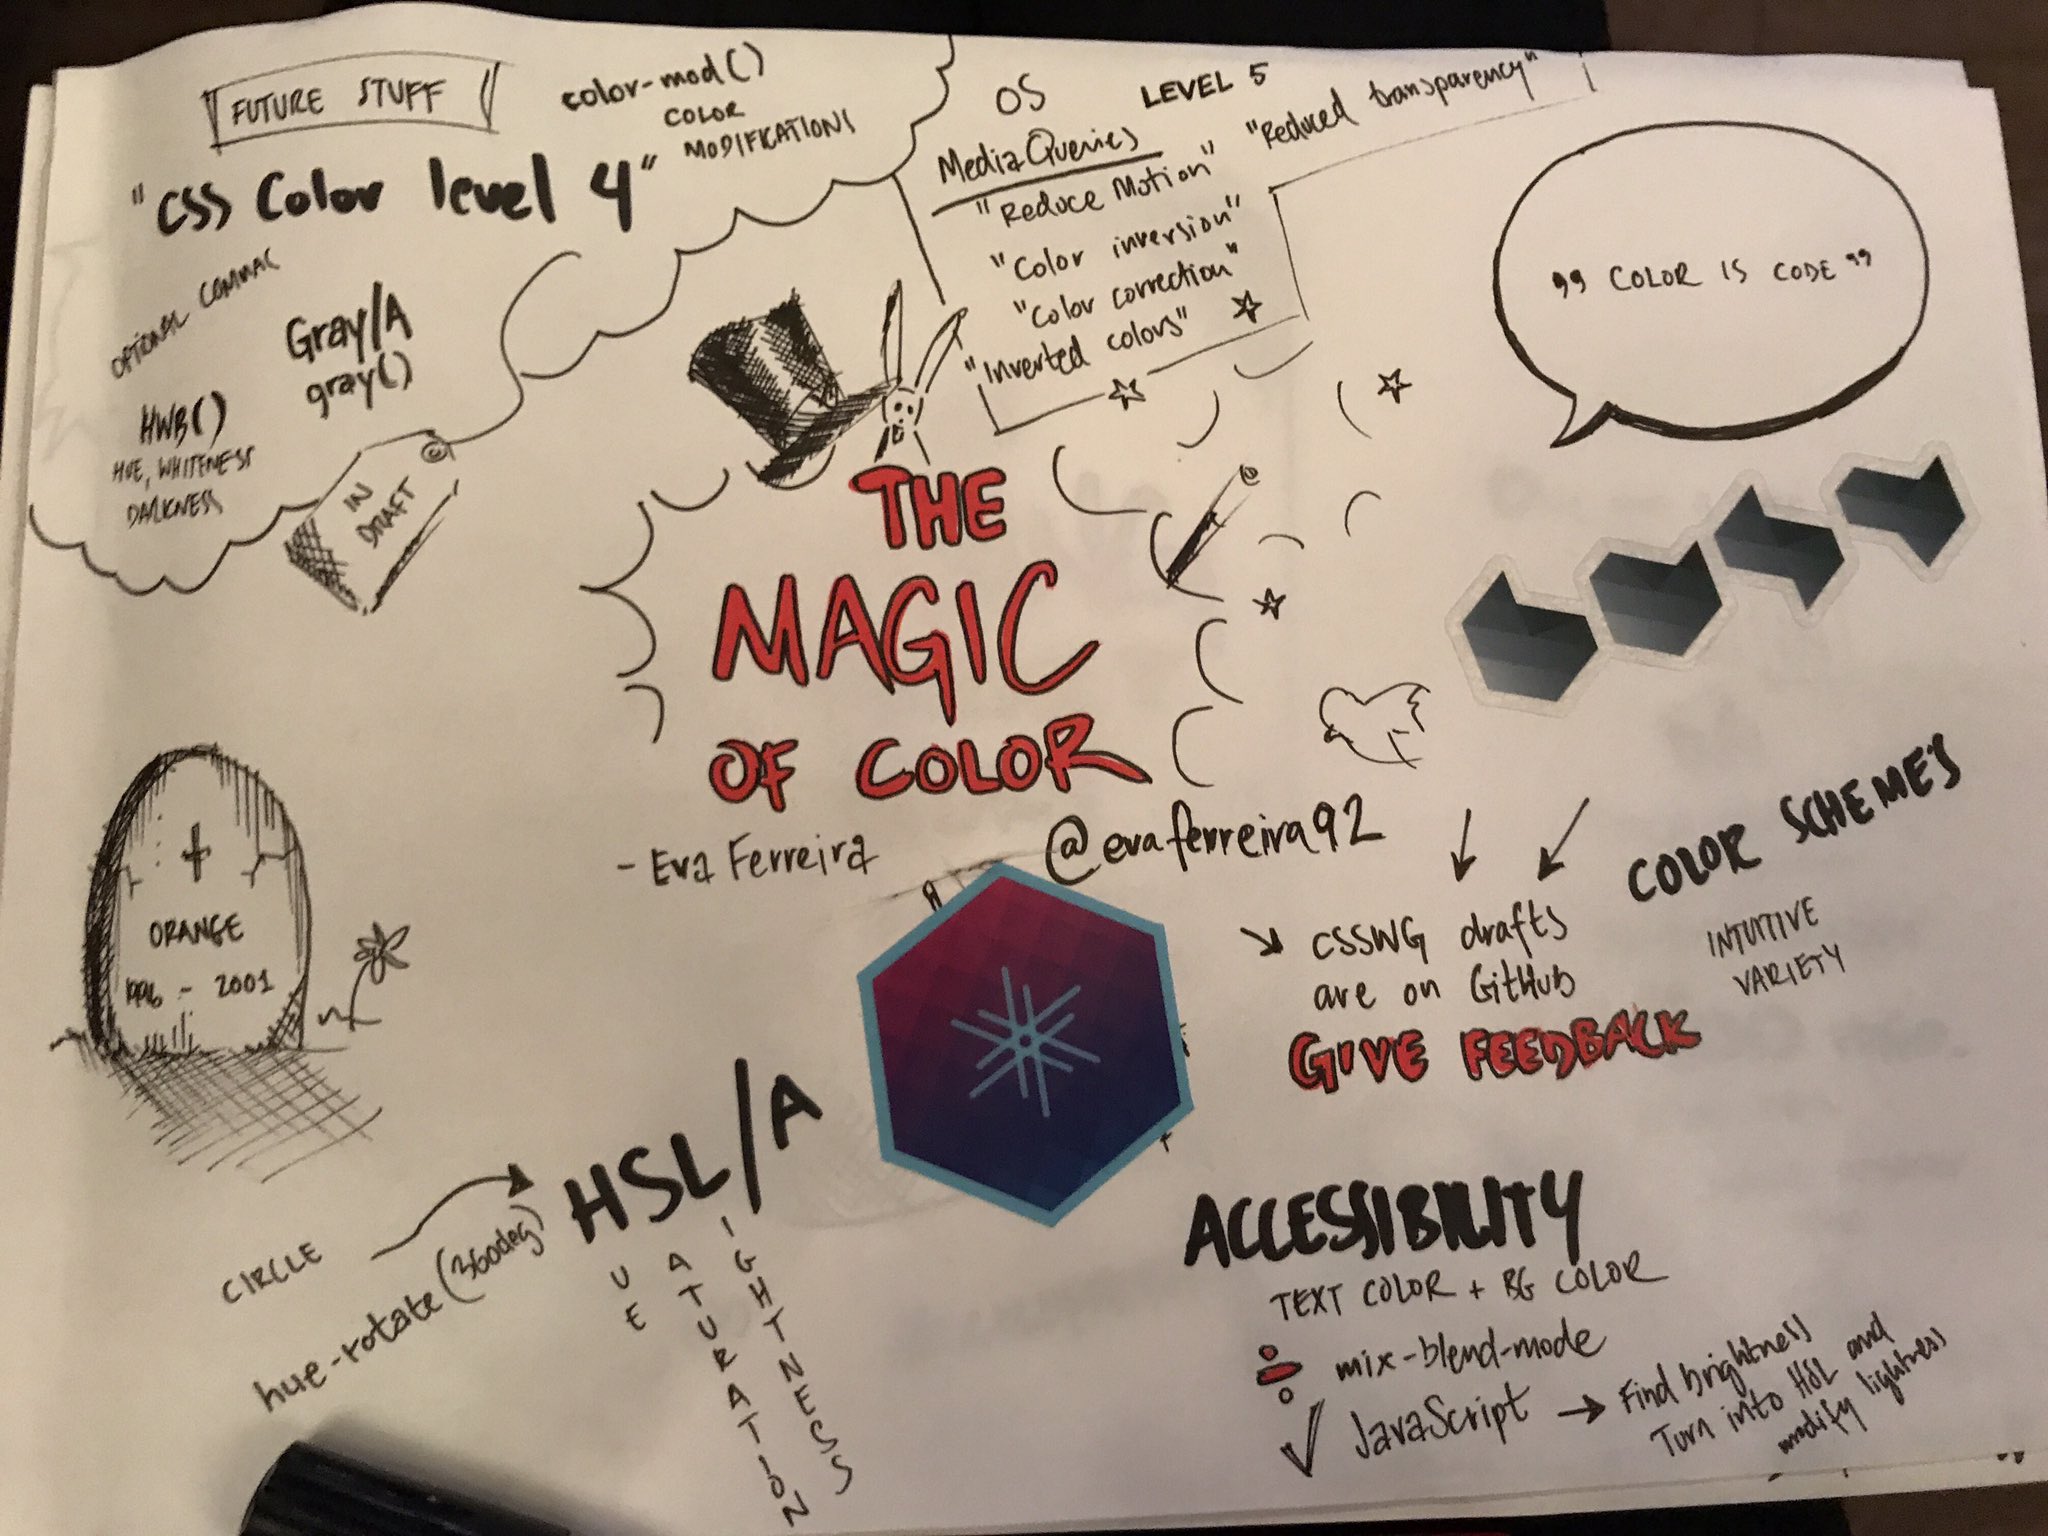 FUTURE STUFF
color-mod()
COLOR
MODIFICATIONS
"CSS Color level 4"
OPTIONAL COMMAS
Gray/A
gray()
HWB()
HUE, WHITENESS
DARKNESS
IN
DRAFT
OS
LEVEL 5
Media Queries
"Reduce Motion"
"Reduced transparency"
"Color inversion"
"Color correction"
"Inverted colors"
"COLOR IS CODE"
THE
MAGIC
OF COLOR
- Eva Ferreira
@evaferreira92
ORANGE
1996 - 2001
COLOR SCHEMES
INTUITIVE
VARIETY
CSSWG drafts
are on GitHub
GIVE FEEDBACK
HSL/A
HUE
SATURATION
LIGHTNESS
CIRCLE
hue-rotate(360deg)
ACCESSIBILITY
TEXT COLOR + BG COLOR
mix-blend-mode
JavaScript → Find brightness
Turn into HSL and
modify lightness